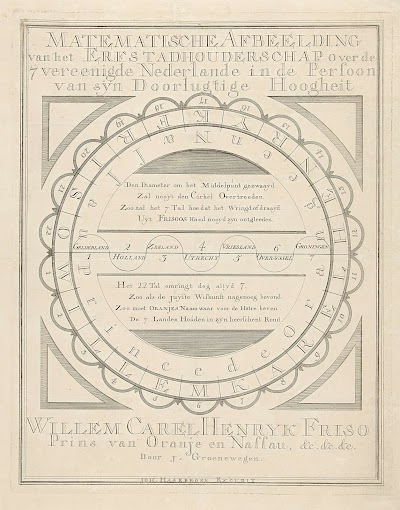 MATEMATISCHE AFBEELDING
van het ERFSTADHOUDERSCHAP over de
7 vereenigde Nederlande in de Persoon
van syn Doorlugtige Hoogheit
Den Diameter om het Middelpunt gezwaayd
Zal nooyt den Cirkel Overtreeden.
Zoo zal het 7 Tal hoe dat het Wringt of draayd
Uyt FRISOOS Hand nooyd zyn ontgleeden.
GELDERLAND 2 ZEELAND 4 VRIESLAND 6 GRONINGEN
1 HOLLAND 3 UTRECHT 5 OVERYSSEL 7
Het 22 Tal omringt dog altyd 7.
Zoo als de
Wiskunst nagenoeg bevond.
Zoo moet ORANJES Naam waar voor de Hater beven
De 7 Landen Houden in zyn heerschent Rond
WILLEM CAREL HENRYK FRISO
Prins van Oranje en Nassau, &c. &c. &c.
Door J. Groenewegen.
JOH. HASEBROEK EXCUDIT